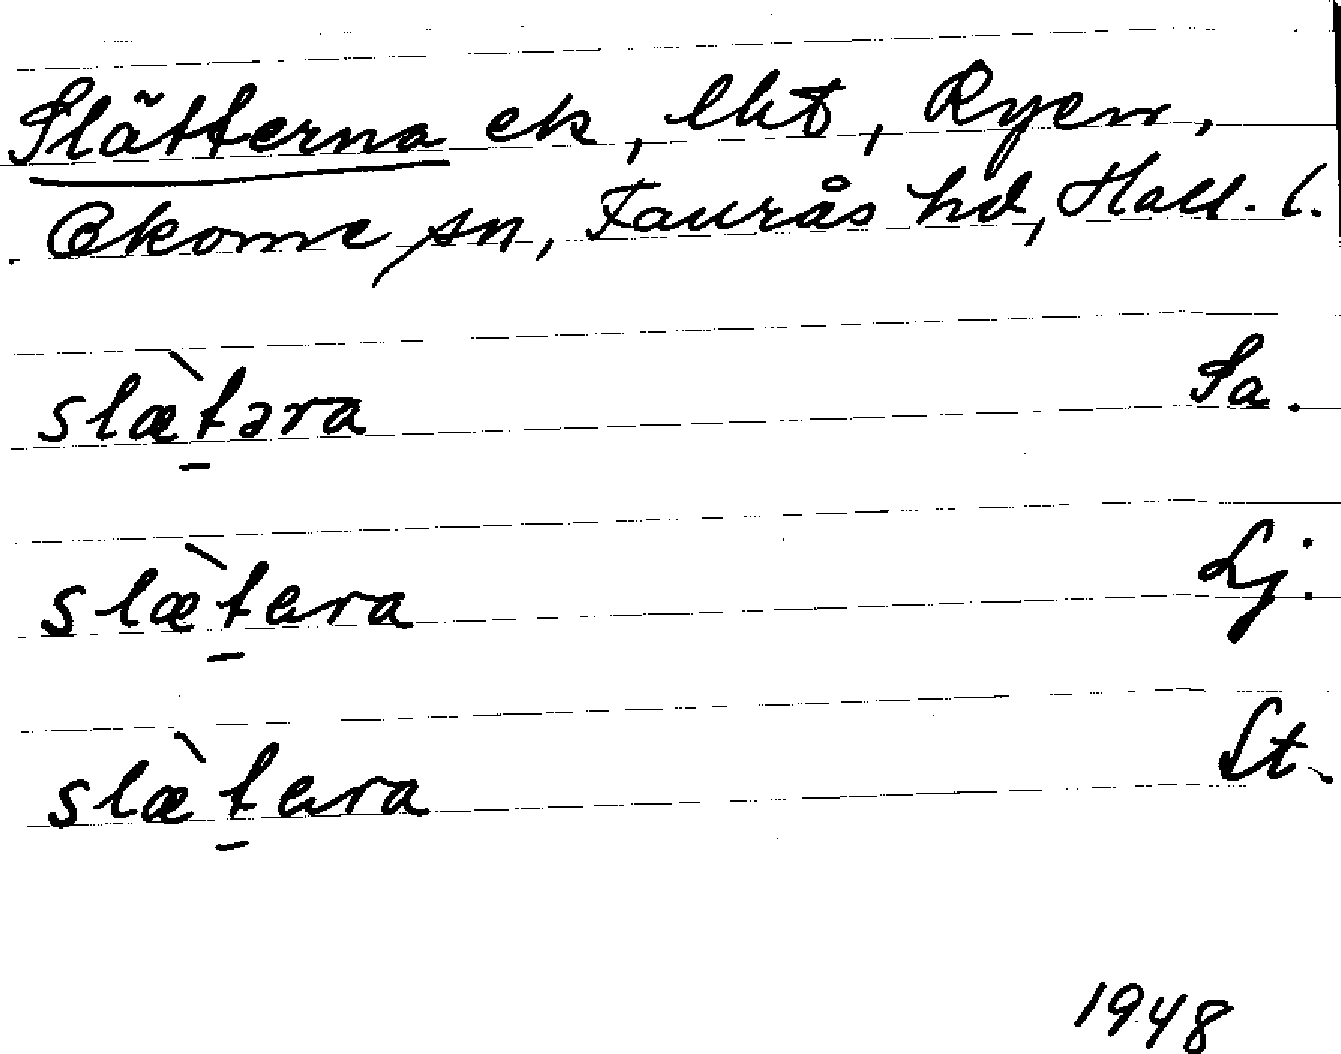 Slätterna ek, lht, Ryen,
Okome sn, Faurås hd, Hall. l.
slæ̀təra Sa.
slæ̀tera Lj.
slæ̀tera St.
1948